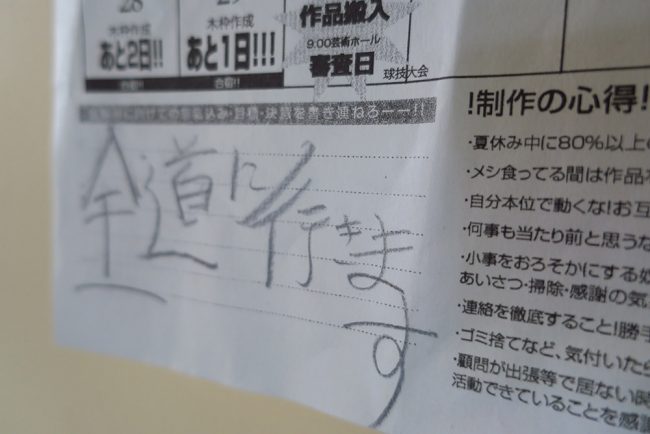 28
木枠作成
あと2日!!
29
木枠作成
あと1日!!!
作品搬入
9:00芸術ホール
審査日
球技大会
全道に行きます
!制作の心得!
・夏休み中に80%以上
・メシ食ってる間は作品
・自分本位で動くな!お互
・何事も当たり前と思うな
・小事をおろそかにする
あいさつ・掃除・感謝の気
・連絡を徹底すること!勝手
・ゴミ捨てなど、気付いたら
・顧問が出張等で居ない時
活動できていることを感